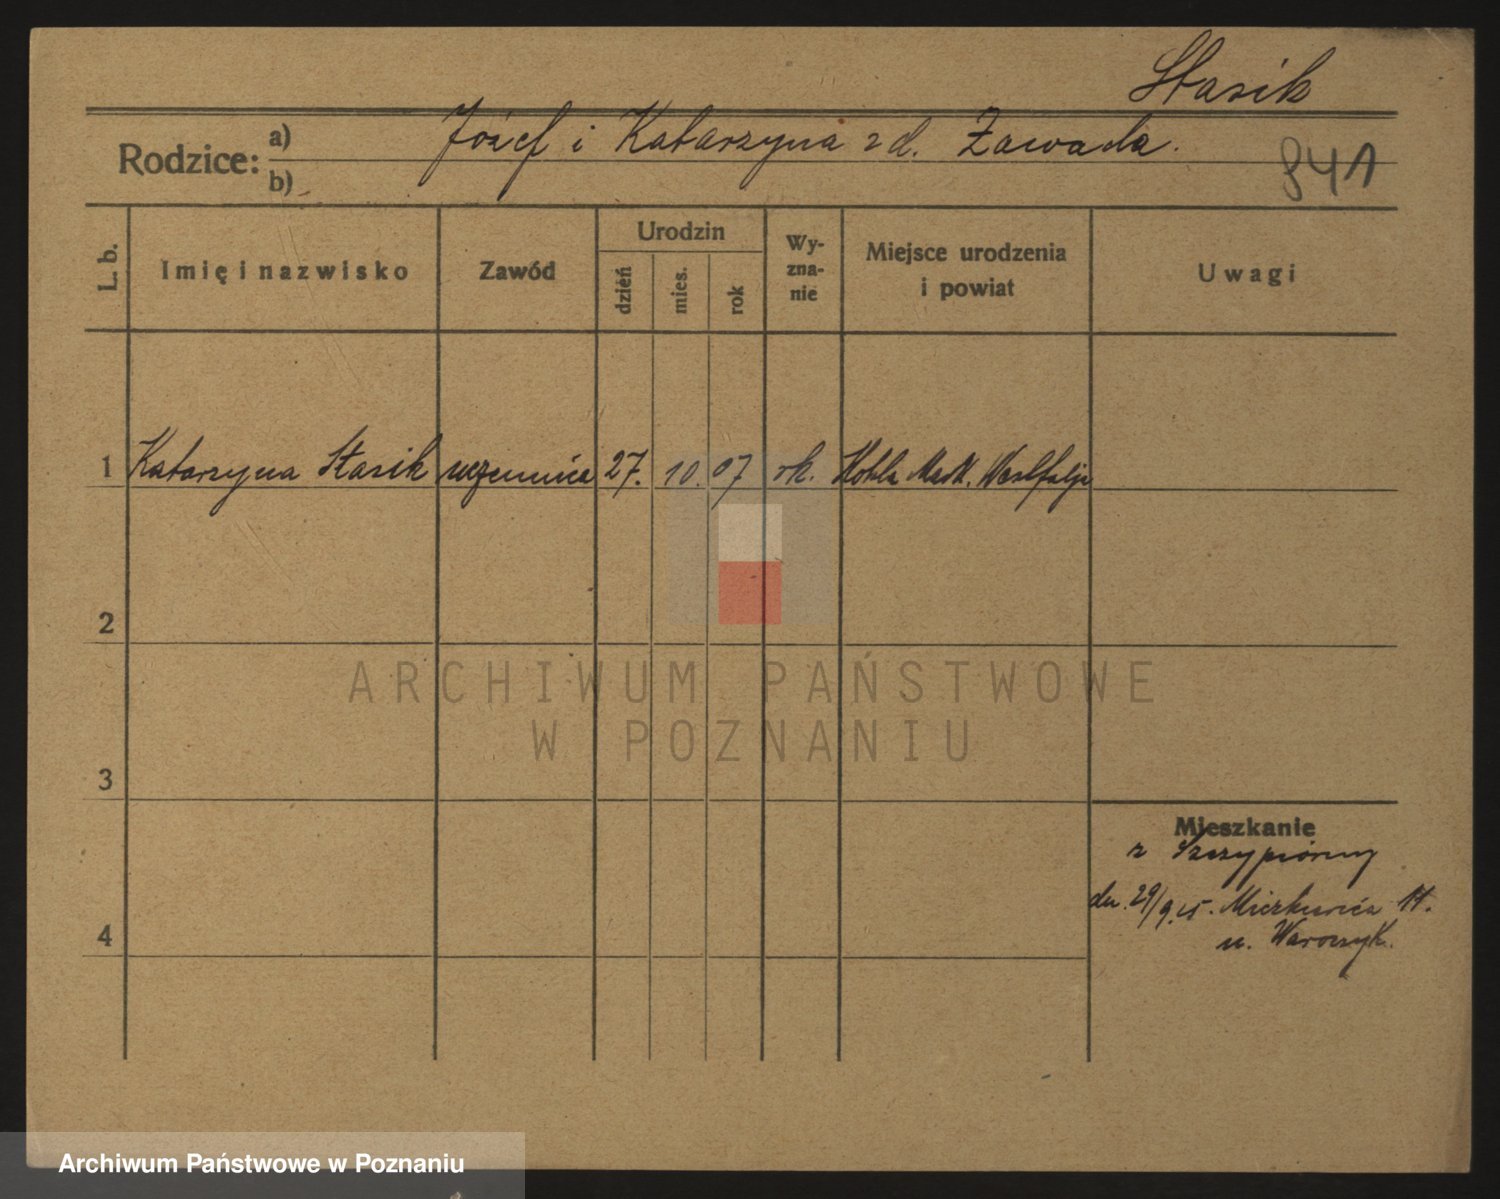 Stasik
Rodzice:
a)
b)
Józef i Katarzyna z d. Zawada.
941
L. b.
Imię i nazwisko
Zawód
Urodzin
dzień
mies.
rok
Wy-
zna-
nie
Miejsce urodzenia
i powiat
Uwagi
1 Katarzyna Stasik uczennica 27. 10. 07 rk. Westfalja
2
3
4
Mieszkanie
z Szczypiórny
dn. 29/9.25. Mickiewicza
u.
ARCHIWUM PAŃSTWOWE
W POZNANIU
Archiwum Państwowe w Poznaniu